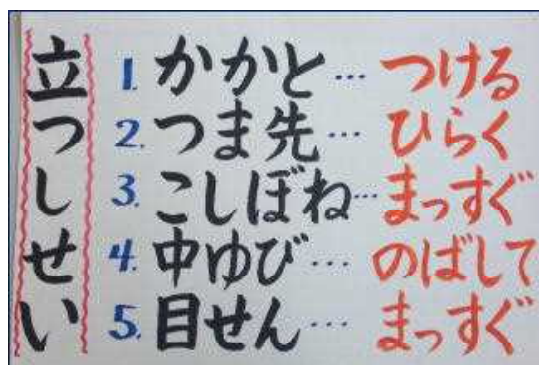 立つしせい
1. かかと… つける
2. つま先… ひらく
3. こしぼね… まっすぐ
4. 中ゆび… のばして
5. 目せん… まっすぐ